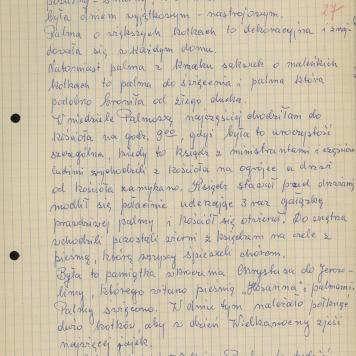 była dniem wyjątkowym - nastrojowym.
27
Palma o większych kotkach to dekoracyjna i znaj-
dowała się w każdym domu.
Natomiast palma z krzaku o maleńkich
kotkach to palma do święcenia i palma która
podobno broniła od złego ducha.
W niedzielę Palmową najczęściej chodziłam do
kościoła na godz. 9⁰⁰, gdyż była to uroczystość
szczególna, kiedy to ksiądz z ministrantami i częścią
ludźmi wychodzili z kościoła na ogrójec a drzwi
od kościoła zamykano. Ksiądz stawał przed drzwiami
modlił się po łacinie uderzając 3 raz gałązką
prawdziwej palmy i kościół się otwierał. Do wnętrza
wchodzili pozostali wierni z księdzem na czele z
pieśnią, którą wszyscy śpiewali chórem.
Była to pamiątka wkroczenia Chrystusa do Jerozo-
limy, którego witano pieśnią "Hosanna" i palmami.
Palmy święcono. W dniu tym należało połknąć
dużo kotków, aby w dzień Wielkanocny zjeść
najwięcej jajek.